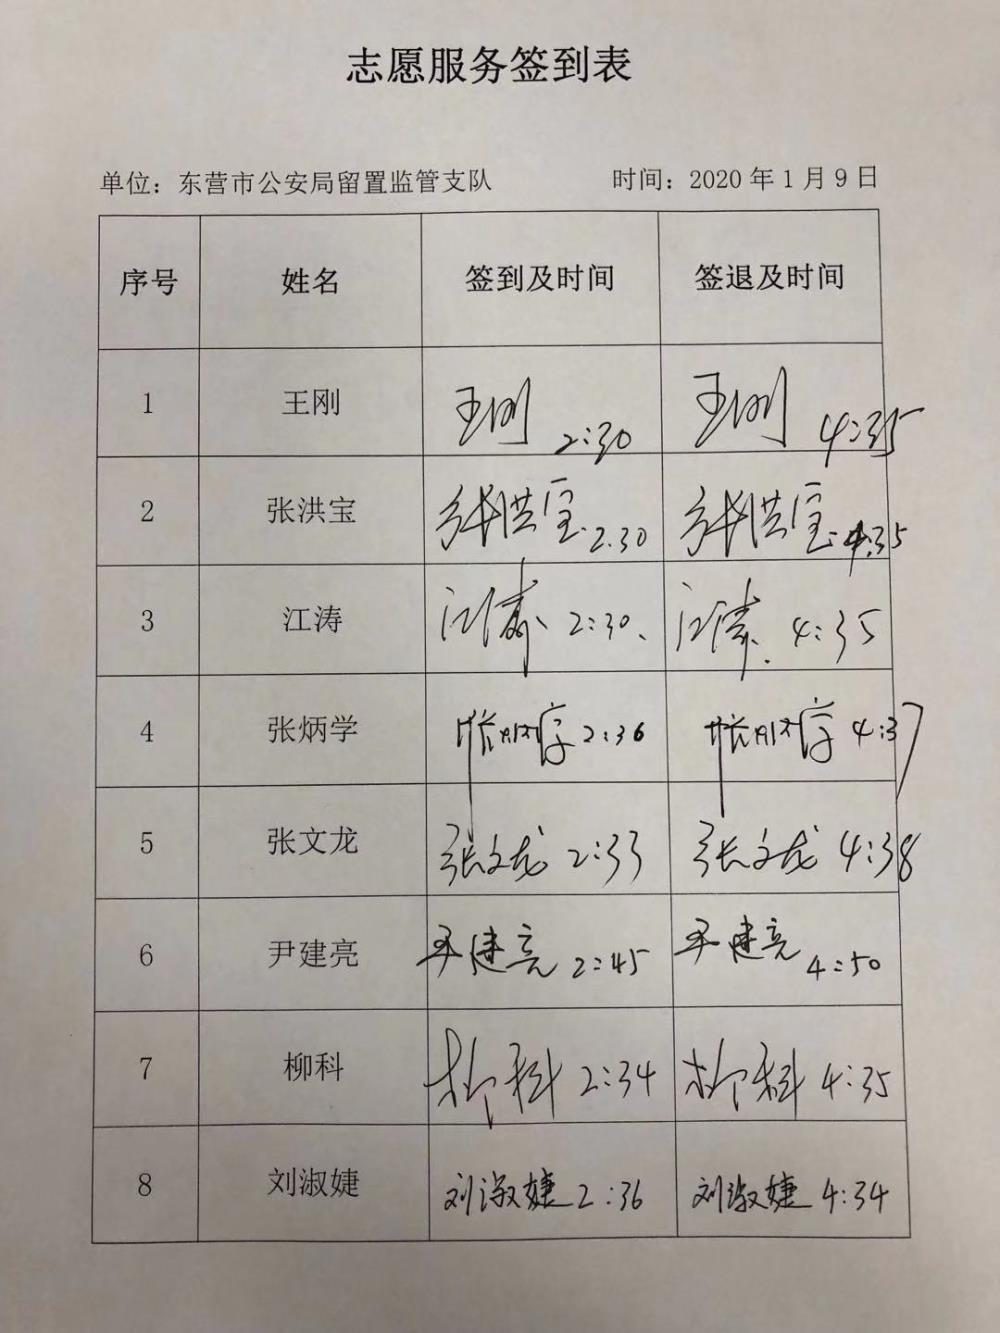 志愿服务签到表
单位：东营市公安局留置监管支队 时间：2020年1月9日
序号 姓名 签到及时间 签退及时间
1 王刚 王刚 2:30 王刚 4:35
2 张洪宝 张洪宝 2.30 张洪宝 4:35
3 江涛 江涛 2:30、 江涛 4:35
4 张炳学 张炳学 2:36 张炳学 4:37
5 张文龙 张文龙 2:33 张文龙 4:38
6 尹建亮 尹建亮 2:45 尹建亮 4:50
7 柳科 柳科 2:34 柳科 4:35
8 刘淑婕 刘淑婕 2:36 刘淑婕 4:34